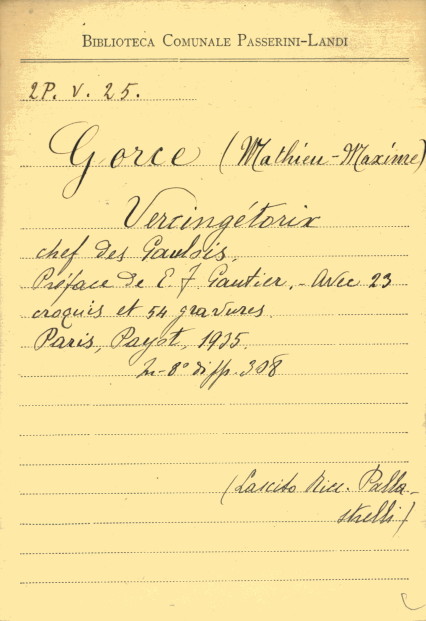 BIBLIOTECA COMUNALE PASSERINI-LANDI
2P. V. 25.
Gorce (Mathieu-Maxime)
Vercingétorix
chef des Gaulois.
Préface de E. F. Gautier. - Avec 23
croquis et 54 gravures.
Paris, Payot, 1935.
In-8° di pp. 308
(Lascito Nicc. Palla-
strelli)